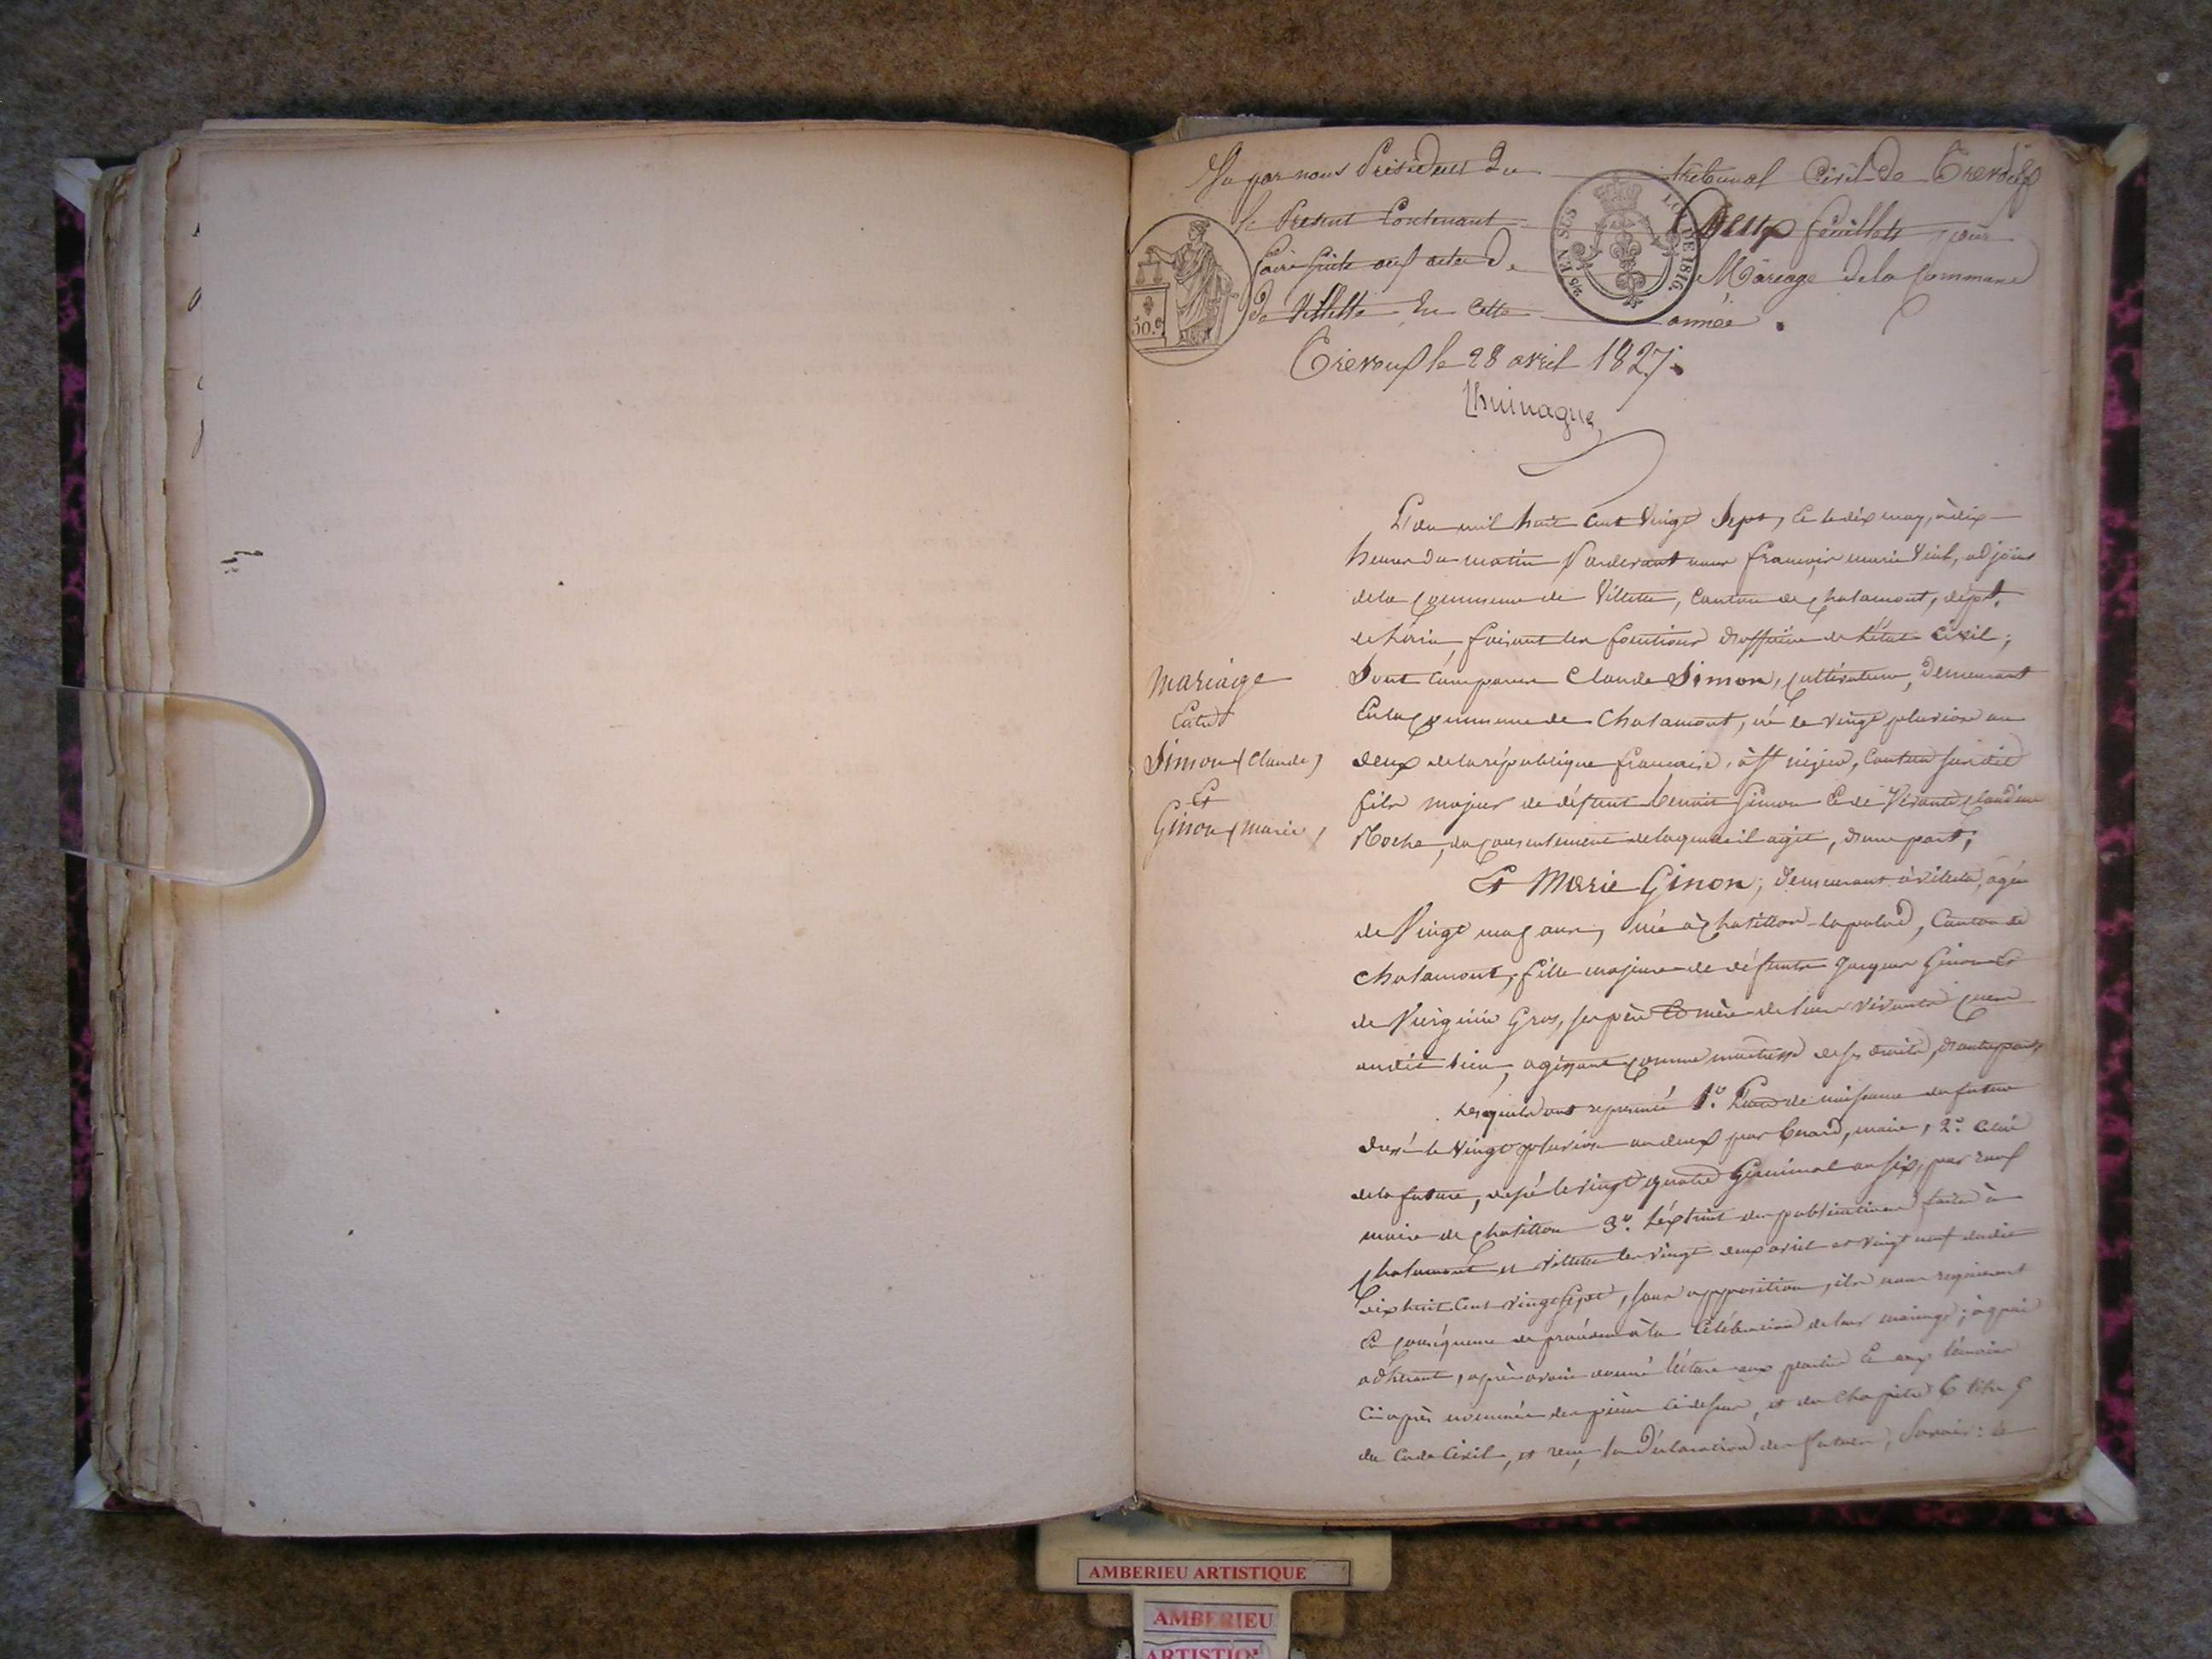 Vu par nous Président du tribunal Civil de Trevoux
le Présent Contenant Deux feuillets pour
faire suite aux actes de Mariage de la Commune
de Villette En Cette année.
50.c
5 EN SUS
LOI DE 1816.
Trévoux le 28 avril 1827.
L'an mil huit Cent Vingt Sept, & le dix may, à dix
heures du matin Pardevant nous françois marie adjoint
de la Commune de Villette, Canton de Chalamont, dépt.
de l'ain, faisant les fonctions d'officier de l'état Civil;
Sont Comparus Claude Simon, Cultivateur, demeurant
En la Commune de Chalamont, né le vingt pluviose an
deux de la république française, à st nizier, Canton susdit
fils majeur de défunt Benoit Simon & de Vivante Claudine
Roche, du Consentement de laquelle il agit, d'une part;
Et Marie Ginon, demeurant à villette, agée
de Vingt neuf ans, née à Chatillon-lapalud, Canton de
Chalamont, fille majeure de défunts Jacques Ginon &
de Virginie Gros, ses père & mère de leur vivants
audit lieu, agissant Comme maitresse de ses droits, d'autre part,
Lesquels ont representé 1°. L'acte de naissance du futur
dressé le Vingt pluviose an deux par Berard, maire, 2°. Celui
de la future, dressé le vingt quatre Germinal an six, par
maire de Chatillon 3°. L'extrait des publications faites à
Chalamont et villette les vingt deux avril et vingt neuf dudit
dix huit Cent Vingt Sept, sans opposition, ils nous requierent
En Conséquence de procéder à la Célébration de leur mariage; à quoi
adhérant, après avoir donné lecture aux parties & aux témoins
Ci après nommés des pièces Ci dessus, et du Chapitre 6 titre 5
du Code Civil, et reçu la Déclaration des futurs, Savoir: le
Mariage
Entre
Simon (Claude)
Et
Ginon (marie)
AMBERIEU ARTISTIQUE
AMBERIEU
ARTISTIQ